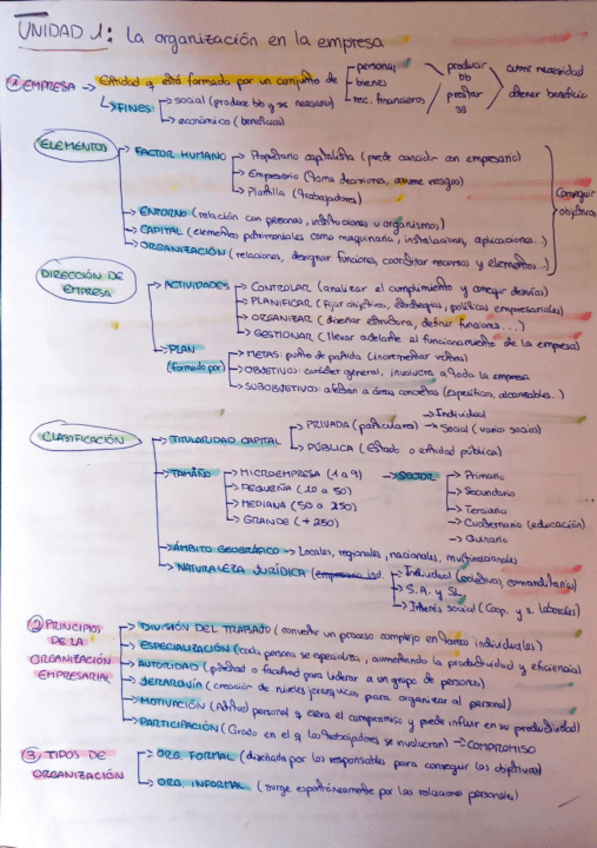 UNIDAD 1: La organización en la empresa
① EMPRESA → Entidad q está formada por un conjunto de - personas - producir bb - cubrir necesidad
- bienes
- rec. financieros - prestar ss - obtener beneficio
↳ FINES → social (produce bb y ss necesario)
→ económico (beneficio)
ELEMENTOS → FACTOR HUMANO → Propietario capitalista (puede coincidir con empresario)
→ Empresario (toma decisiones, asume riesgos)
→ Plantilla (trabajadores)
Conseguir objetivos
→ ENTORNO (relación con personas, instituciones u organismos)
→ CAPITAL (elementos patrimoniales como maquinaria, instalaciones, aplicaciones...)
→ ORGANIZACIÓN (relaciones, designar funciones, coordinar recursos y elementos...)
DIRECCIÓN DE EMPRESA → ACTIVIDADES → CONTROLAR (analizar el cumplimiento y corregir desvíos)
→ PLANIFICAR (fijar objetivos, estrategias, políticas empresariales)
→ ORGANIZAR (diseñar estructura, definir funciones...)
→ GESTIONAR (llevar adelante el funcionamiento de la empresa)
→ PLAN (formado por) → METAS: punto de partida (incrementar ventas)
→ OBJETIVOS: carácter general, involucra a toda la empresa
→ SUBOBJETIVOS: afectan a áreas concretas (específicos, alcanzables...)
CLASIFICACIÓN → TITULARIDAD CAPITAL → PRIVADA (particulares) → Individual
→ Social (varios socios)
→ PÚBLICA (Estado o entidad pública)
→ TAMAÑO → MICROEMPRESA (1 a 9) → SECTOR → Primario
→ PEQUEÑA (10 a 50) → Secundario
→ MEDIANA (50 a 250) → Terciario
→ GRANDE (+250) → Cuaternario (educación)
→ Quinario
→ ÁMBITO GEOGRÁFICO → Locales, regionales, nacionales, multinacionales
→ NATURALEZA JURÍDICA (empresario ind. → Individual (colectivas, comanditarias)
→ S.A. y SL
→ Interés social (Coop. y s. laborales)
② PRINCIPIOS DE LA ORGANIZACIÓN EMPRESARIAL → DIVISIÓN DEL TRABAJO (convertir un proceso complejo en tareas individuales)
→ ESPECIALIZACIÓN (cada persona se especializa, aumentando la productividad y eficiencia)
→ AUTORIDAD (potestad o facultad para liderar a un grupo de personas)
→ JERARQUÍA (creación de niveles jerárquicos para organizar al personal)
→ MOTIVACIÓN (Actitud personal q eleva el compromiso y puede influir en su productividad)
→ PARTICIPACIÓN (Grado en el q los trabajadores se involucran) → COMPROMISO
③ TIPOS DE ORGANIZACIÓN → ORG. FORMAL (diseñada por los responsables para conseguir los objetivos)
→ ORG. INFORMAL (surge espontáneamente por las relaciones personales)